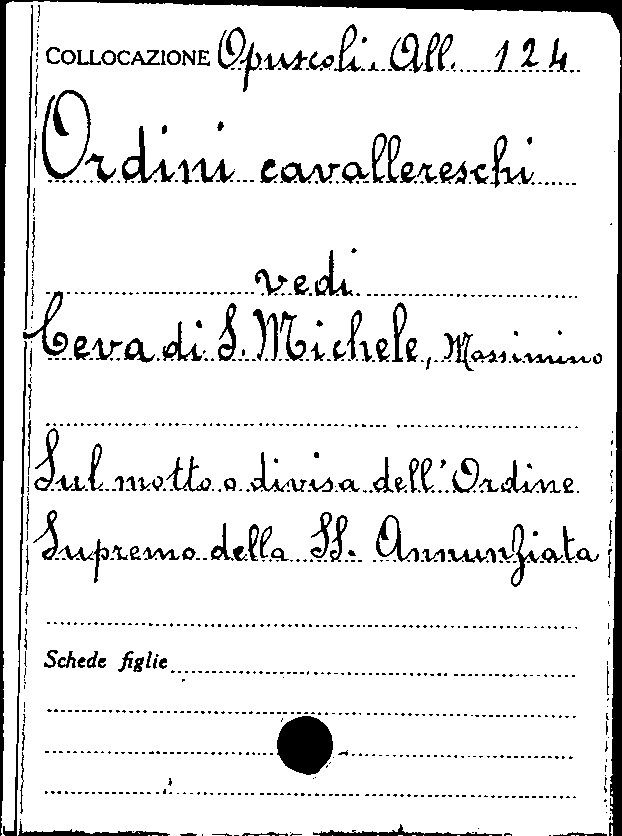 COLLOCAZIONE Opuscoli. All. 124
Ordini cavallereschi
vedi
Ceva di S. Michele, Massimino
Sul motto o divisa dell'Ordine
Supremo della SS. Annunziata
Schede figlie